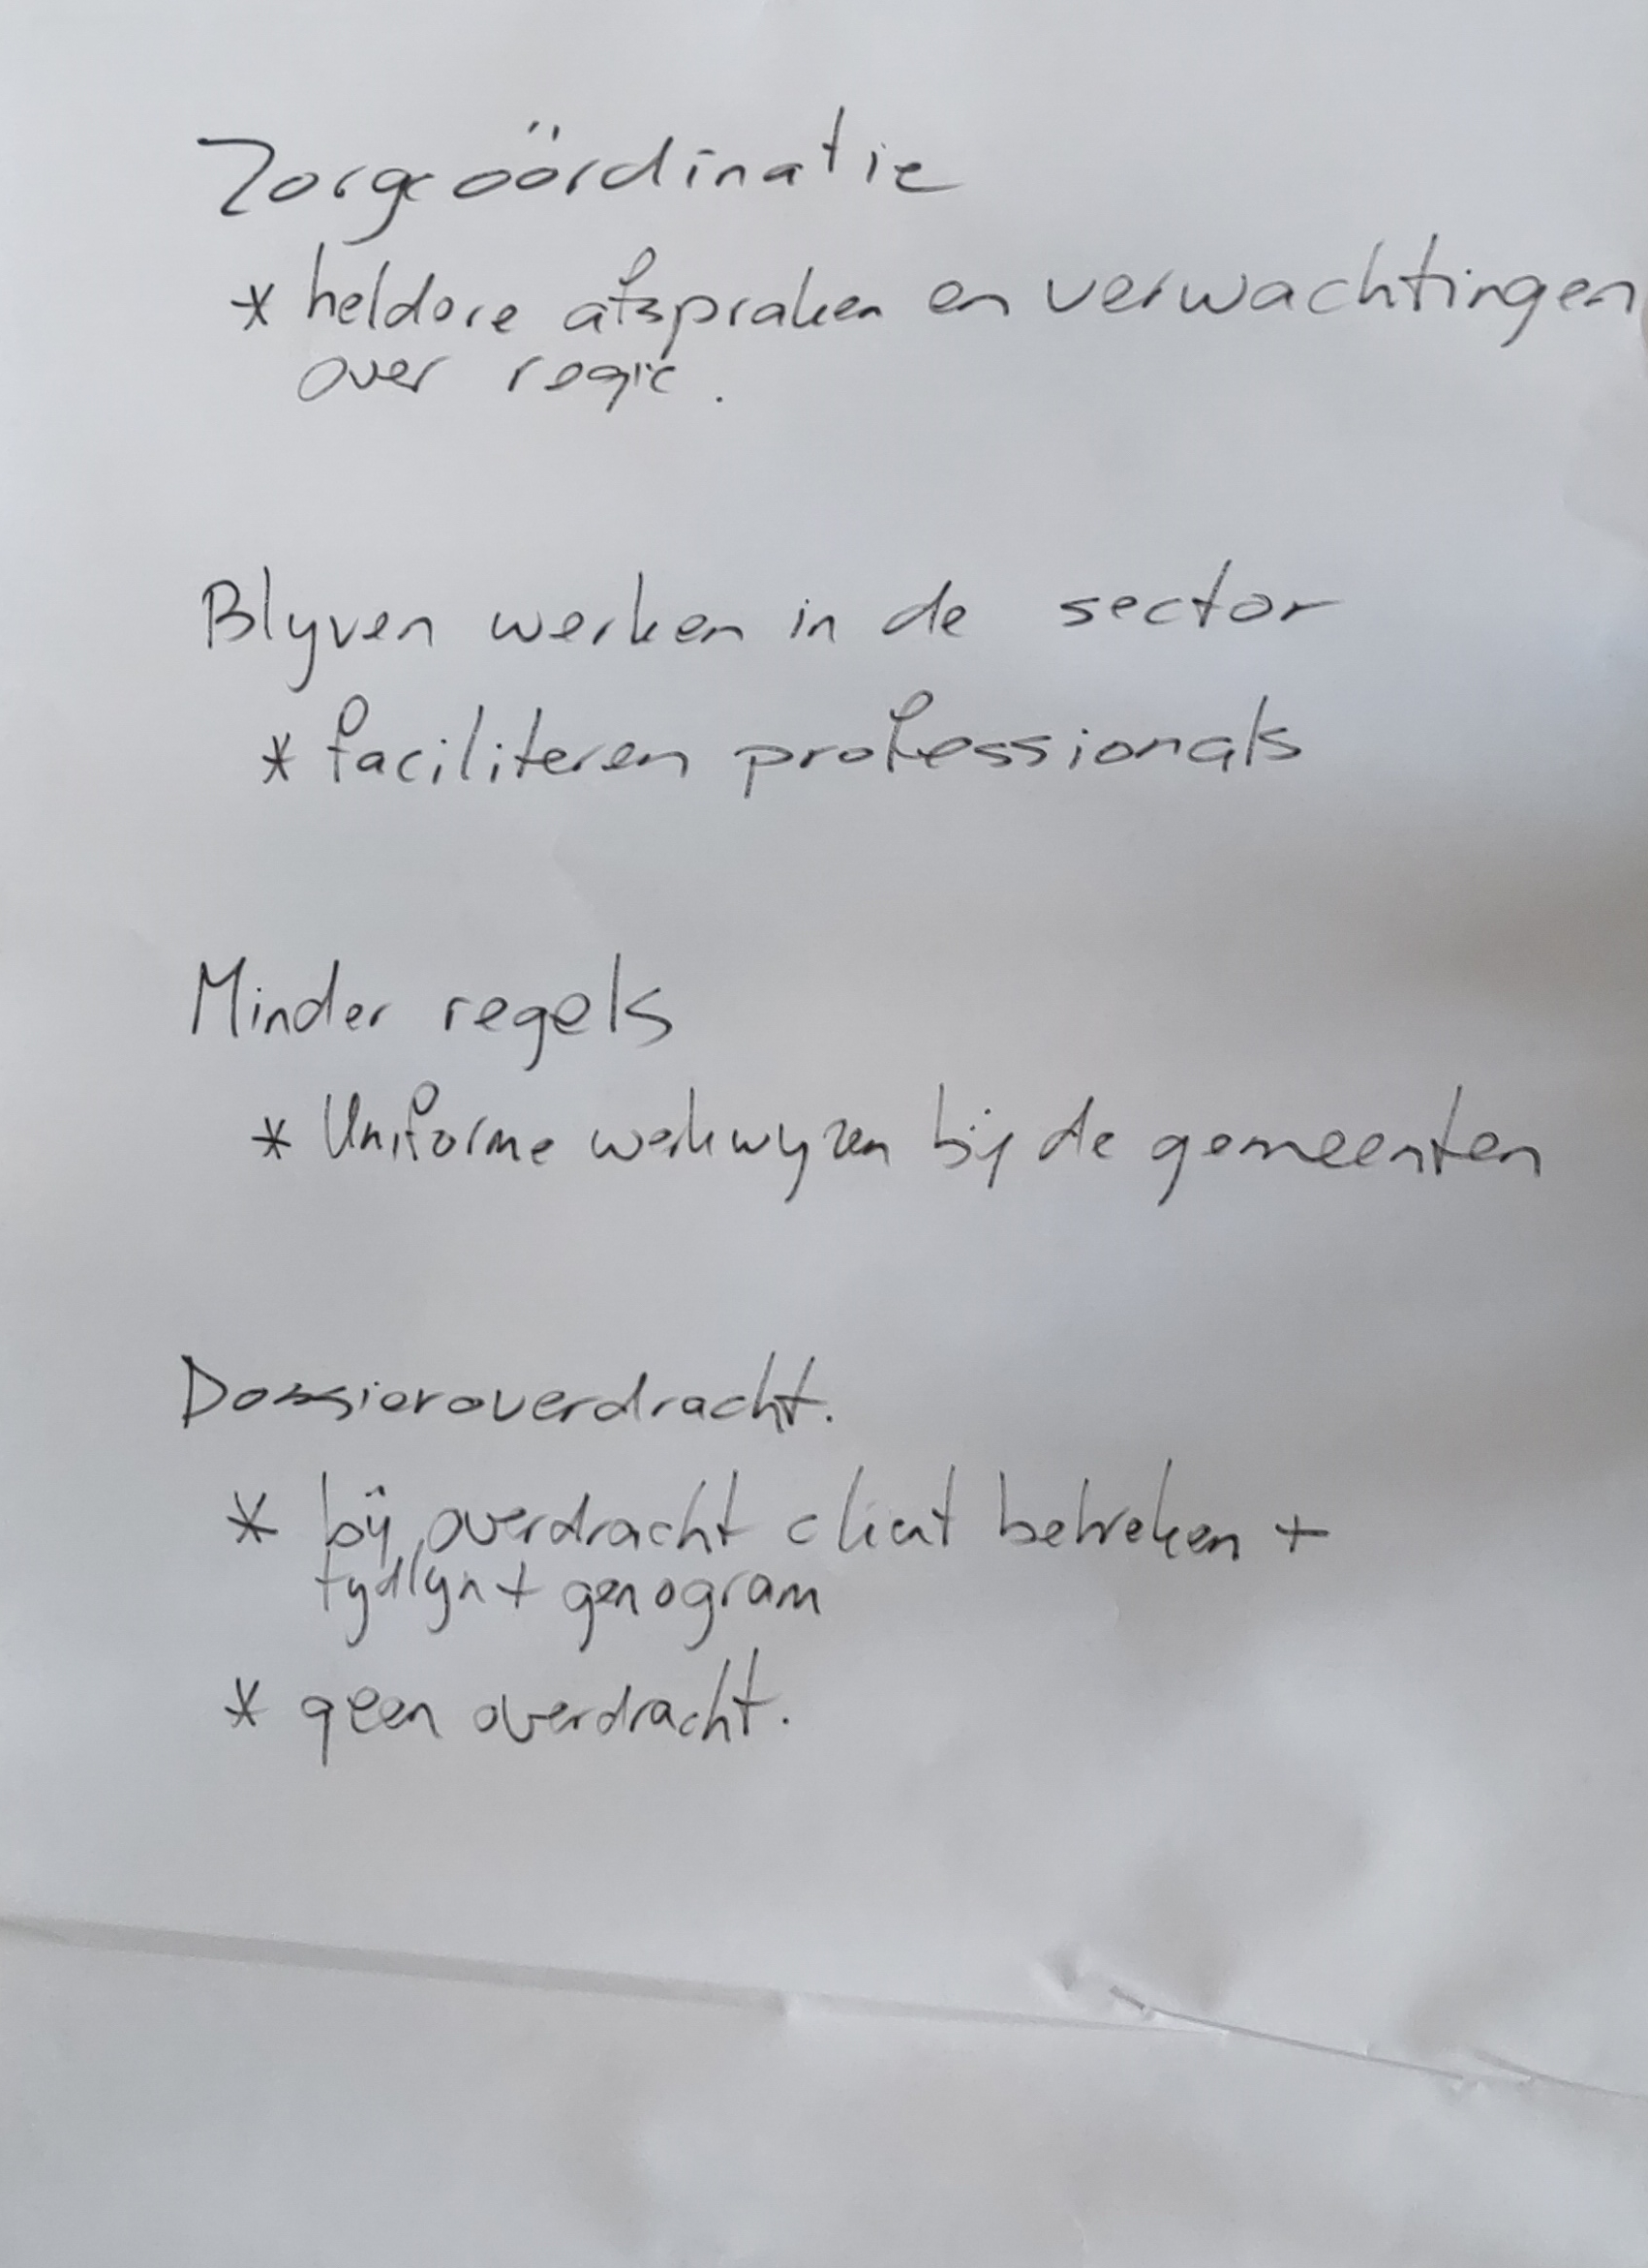 Zorgcoördinatie
* heldere afspraken en verwachtingen
over regie.
Blyven werken in de sector
* faciliteren professionals
Minder regels
* Uniforme werkwyzen bij de gemeenten
Dossieroverdracht.
* bij overdracht client betreken +
tydlyn + genogram
* geen overdracht.